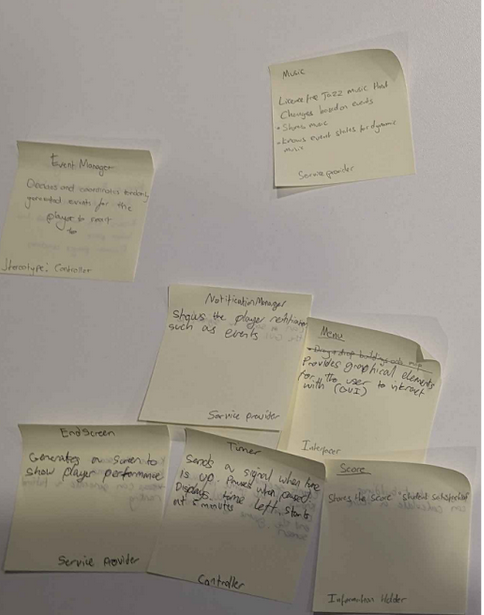 Music
License free Jazz music that
Changes based on events
- Stores music
- Knows event states for dynamic
music
Service provider
Event Manager
and coordinates randomly
generated events for the
player to react
to
Stereotype: Controller
NotificationManager
Shows the player notifications
such as events
Service provider
Menu
Provides graphical elements
for the user to interact
with (GUI)
Interfacer
EndScreen
Generates a screen to
show player performance
Service Provider
Timer
Sends a signal when time
is up. Paused when paused
Displays time left. Starts
at 5 minutes
Controller
Score
Stores the score "student satisfaction"
Information Holder